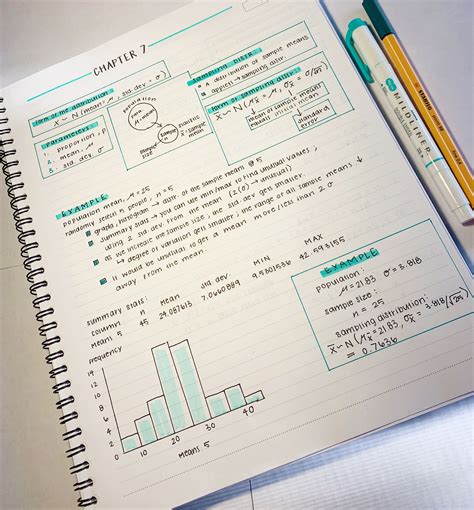 CHAPTER 7
form of the distribution
X ~ N(mean: μ, std dev: σ)
Parameters
1. proportion, p
2. mean, μ
3. std. dev, σ
population
mean, μ
sample
sample size
statistic
SAMPLING DISTR.
distribution of sample means
applet → sampling distr.
form of sampling distr.
mean of sample means
equals initial mean
standard error
EXAMPLE
population mean, μ = 25
randomly select n people, n = 5
graph, histogram → distr. of the sample mean @ 5
summary stats → you can use min/max to find unusual values,
using 2 std. dev. from the mean
as we increase the sample size, the range of all sample means ↓
→ degree of variation gets smaller, the std. dev. gets smaller.
it would be unusual to get a mean more/less than 2 σ
away from the mean.
summary stats:
column n mean std. dev. MIN MAX
means 5 45 24.087613 7.0660889 9.5301536 42.593155
frequency
14
12
10
8
6
4
2
0 10 20 30 40
Means 5
EXAMPLE
population:
μ = 2183 σ = 3.818
sample size:
n = 25
sampling distribution:
x̄ ~ N(μx̄ = 2183, σx̄ = 3.818/√25)
= 0.7636
MILDLINER
STABILO